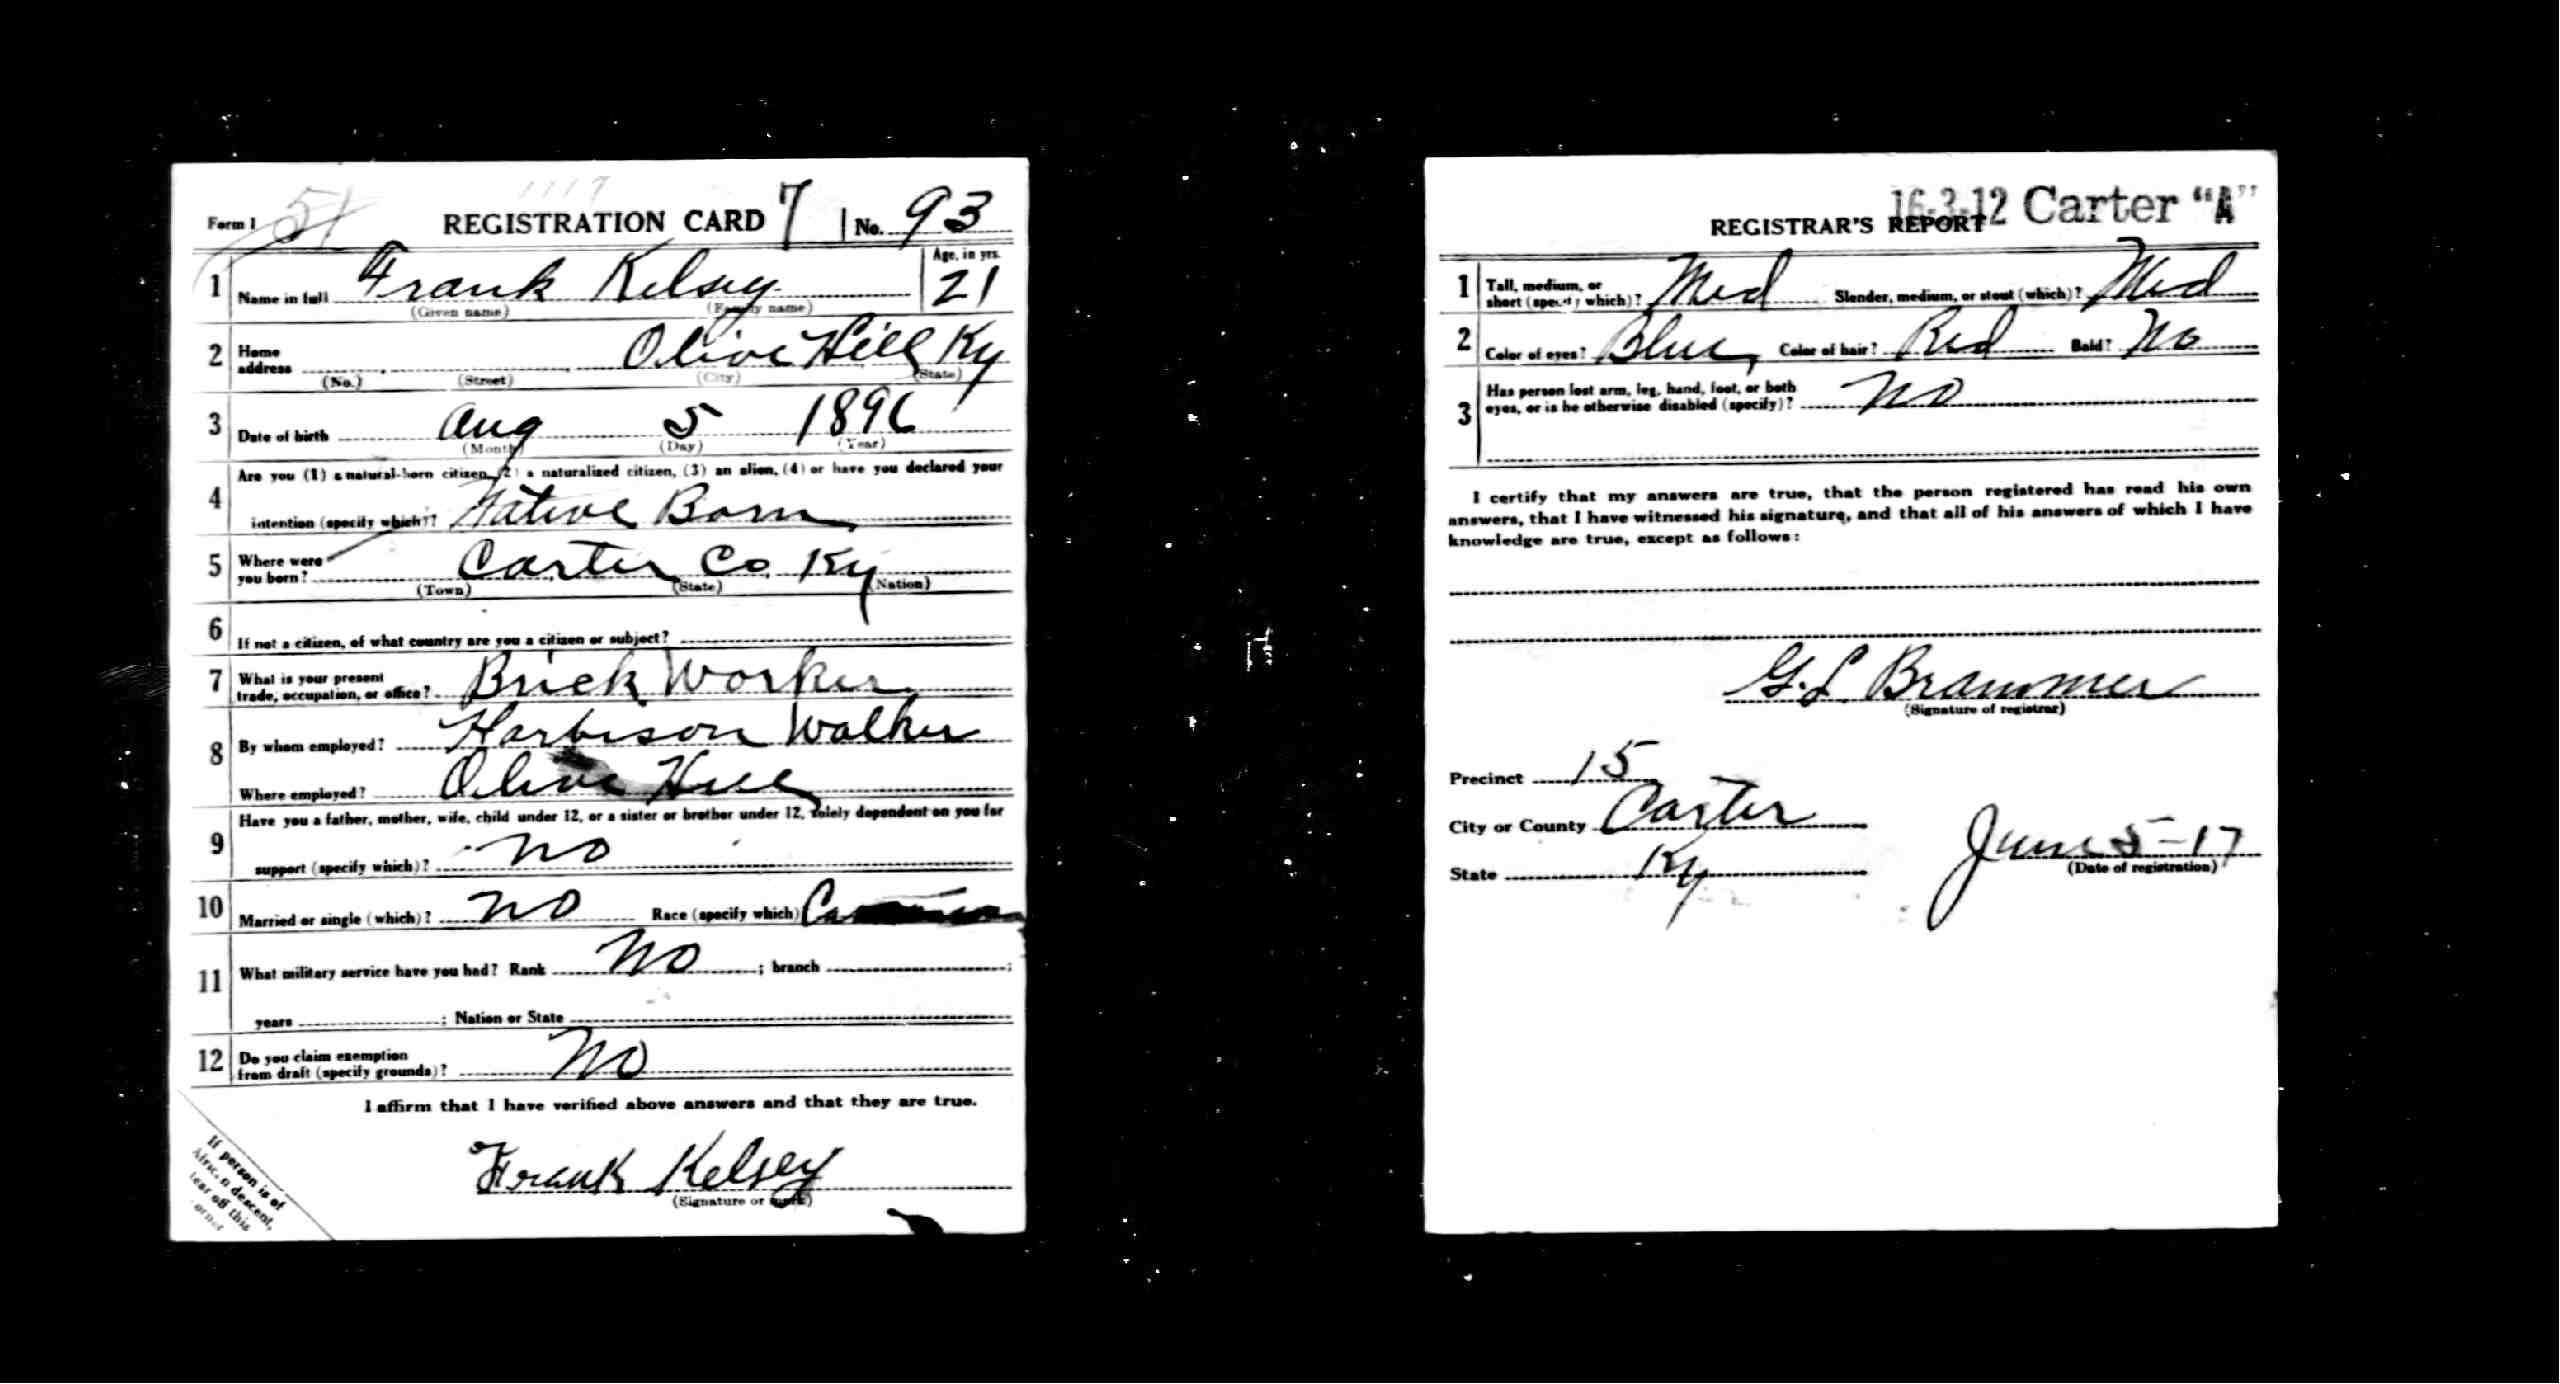 Form 1 51 1117 REGISTRATION CARD 7 No. 93
1 Name in full Frank Kelsey Age, in yrs. 21
(Given name) (Family name)
2 Home address Olive Hill Ky
(No.) (Street) (City) (State)
3 Date of birth Aug 5 1896
(Month) (Day) (Year)
4 Are you (1) a natural-born citizen, (2) a naturalized citizen, (3) an alien, (4) or have you declared your
intention (specify which)? Native Born
5 Where were you born? Carter Co Ky
(Town) (State) (Nation)
6 If not a citizen, of what country are you a citizen or subject?
7 What is your present trade, occupation, or office? Brick Worker
8 By whom employed? Harbison Walker
Where employed? Olive Hill
9 Have you a father, mother, wife, child under 12, or a sister or brother under 12, solely dependent on you for
support (specify which)? no
10 Married or single (which)? no Race (specify which)
11 What military service have you had? Rank No ; branch ;
years ; Nation or State
12 Do you claim exemption from draft (specify grounds)? No
I affirm that I have verified above answers and that they are true.
Frank Kelsey
(Signature or mark)
If person is of
African descent,
tear off this
corner
16-3-12 Carter "A"
REGISTRAR'S REPORT
1 Tall, medium, or short (specify which)? Med Slender, medium, or stout (which)? Med
2 Color of eyes? Blue Color of hair? Red Bald? No
3 Has person lost arm, leg, hand, foot, or both
eyes, or is he otherwise disabled (specify)? No
I certify that my answers are true, that the person registered has read his own
answers, that I have witnessed his signature, and that all of his answers of which I have
knowledge are true, except as follows:
G. L Brammer
(Signature of registrar)
Precinct 15
City or County Carter
State Ky
June 5-17
(Date of registration)